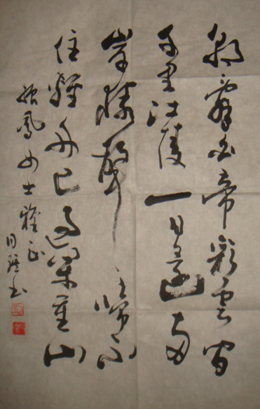 朝辞白帝彩云间
千里江陵一日还两
岸猿声啼不
住轻舟已过万重山
凤女士雅正
书